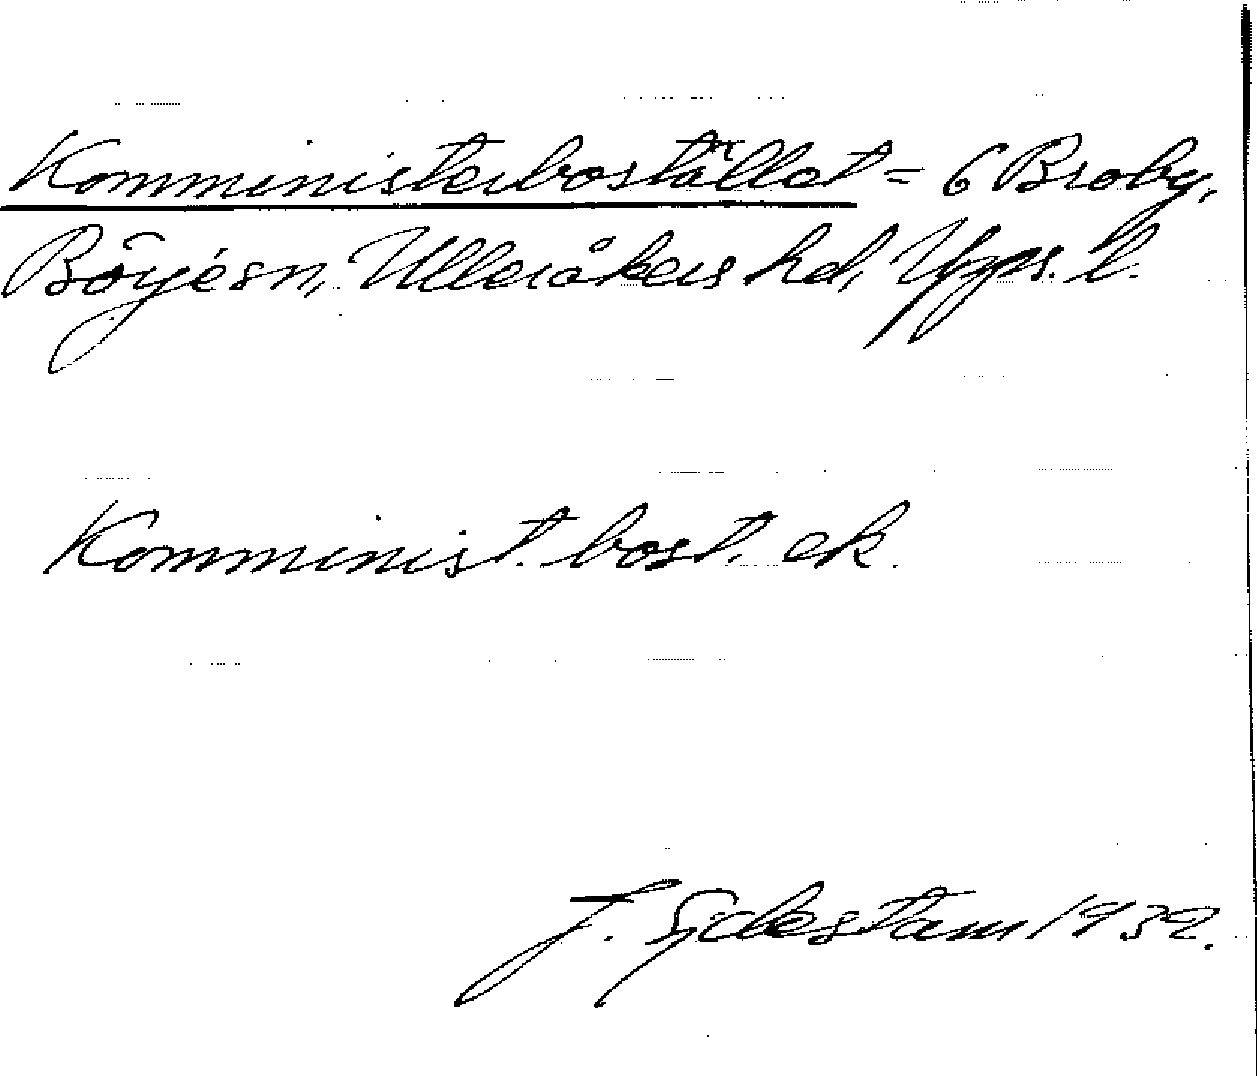 Komministerbostället = 6 Broby,
Börje sn, Ulleråkers hd, Upps. l.
Komminist. bost. ek.
J. Sydestam 1932.